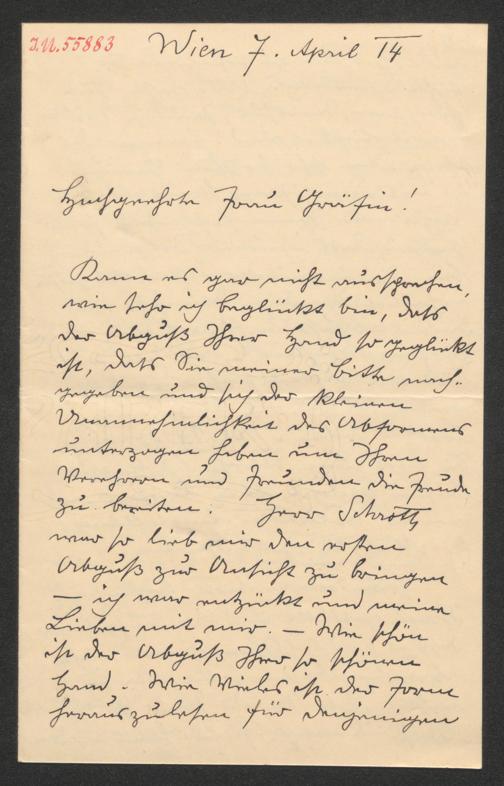 I.N. 55883
Wien 7. April 14
Hochgeehrte Frau Gräfin!
Kann es gar nicht aussprechen,
wie sehr ich beglückt bin, dass
der Abguß Ihrer Hand so geglückt
ist, dass Sie meiner Bitte nach-
gegeben und sich der kleinen
Unannehmlichkeit des Abformens
unterzogen haben um Ihren
Verehrern und Freunden die Freude
zu bereiten. Herr Schroth
war so lieb mir den ersten
Abguß zur Ansicht zu bringen
— ich war entzückt und meine
Lieben mit mir. — Wie schön
ist der Abguß Ihrer so schönen
Hand. Wie Vieles ist der Form
herauszulesen für denjenigen